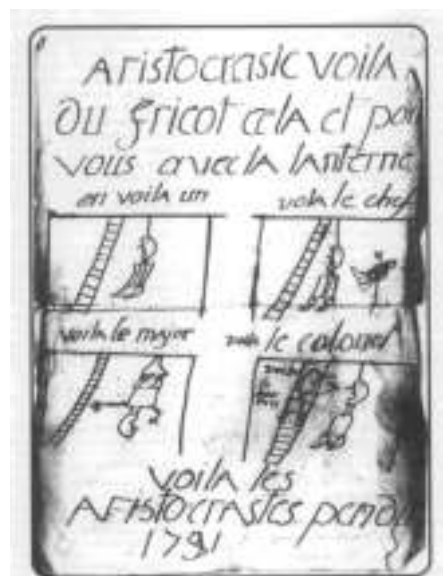 Aristocrasie voila
du fricot cela et pour
vous avec la lanterne
en voila un
voila le chef
voila le major
voila le colonel
voila les
Aristocrastes pendu
1791